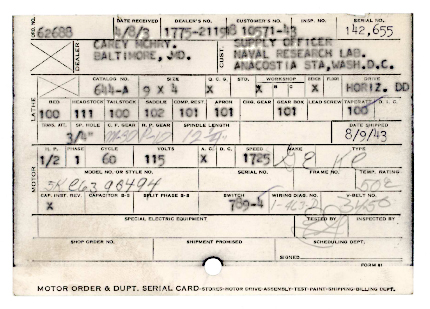 ORD. NO. DATE RECEIVED DEALER'S NO. CUSTOMER'S NO. INSP. NO. SERIAL NO.
62688 4/8/3 1775-21194B 10571-43 142,655
DEALER CAREY MCHRY. CUST. SUPPLY OFFICER
BALTIMORE, MD. NAVAL RESEARCH LAB.
ANACOSTIA STA, WASH. D.C.
CATALOG NO. SIZE Q. C. G. STD. WORKSHOP BENCH FLOOR DRIVE
644-A 9 X 4 X X B C X HORIZ. DD
LATHE
BED HEADSTOCK TAILSTOCK SADDLE COMP. REST. APRON CHG. GEAR GEAR BOX LEAD SCREW TAPER ATT. D. I. C.
100 111 100 102 101 101 101 100 100
TRANS. ATT. SP. HOLE C. Y. GEAR R. P. GEAR SPINDLE LENGTH DATE SHIPPED
3/4" 8/9/43
MOTOR
H. P. PHASE CYCLE VOLTS A. C. D. C. SPEED MAKE TYPE
1/2 1 60 115 X 1725
MODEL NO. OR STYLE NO. SERIAL NO. FRAME NO. TEMP. RATING
CAP. INST. REV. CAPACITOR S-S SPLIT PHASE S-S SWITCH WIRING DIAG. NO. V-BELT NO.
X 789-4
SPECIAL ELECTRIC EQUIPMENT TESTED BY INSPECTED BY
SHOP ORDER NO. SHIPMENT PROMISED SCHEDULING DEPT.
SIGNED
FORM 81
MOTOR ORDER & DUPT. SERIAL CARD-STORES-MOTOR DRIVE-ASSEMBLY-TEST-PAINT-SHIPPING-BILLING DEPT.